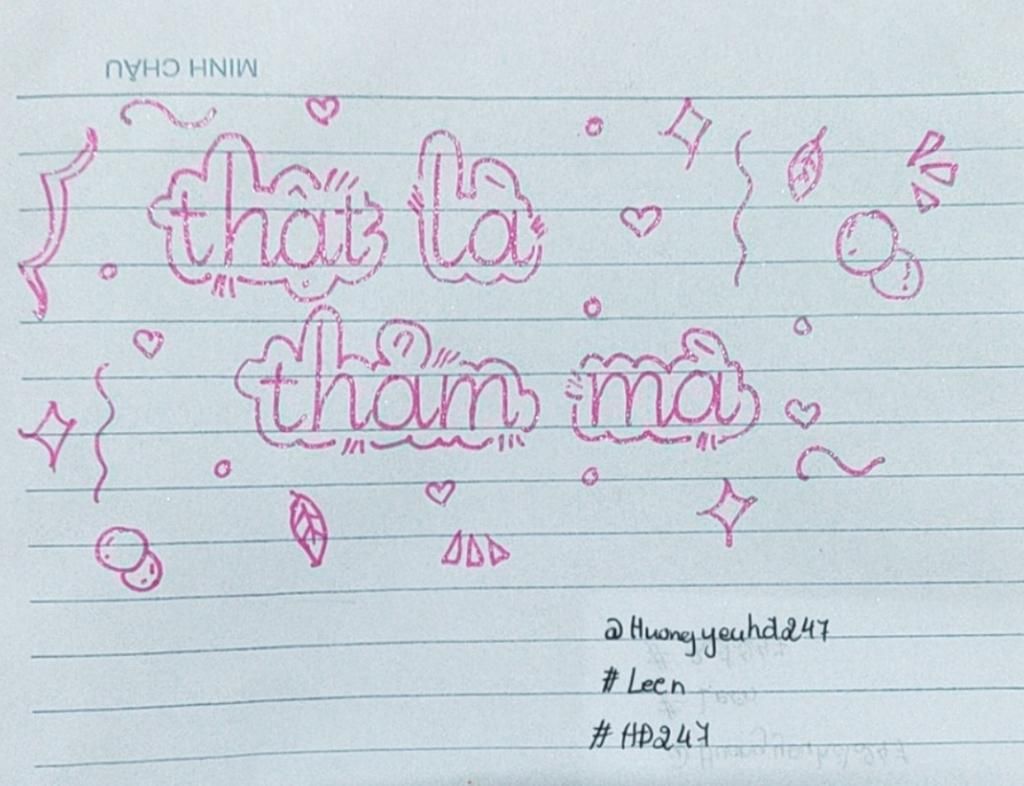 MINH CHÂU
thật là
thảm mà
@Huongyeuhđ247
# Leen
# HĐ247